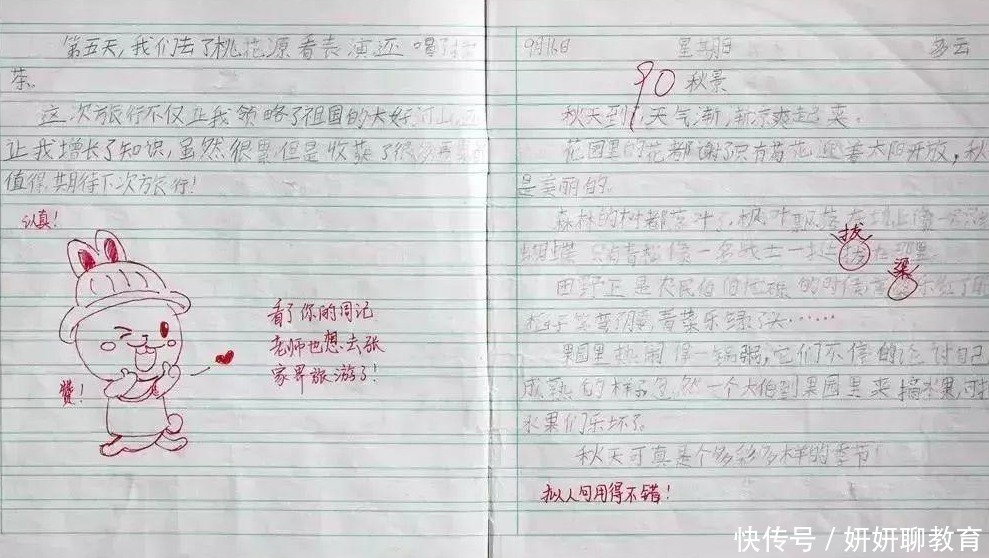 第五天,我们去了桃花源看表演还喝了擂
茶。
这次旅行不仅让我领略了祖国的大好河山,
让我增长了知识,虽然很累但是收获了很多
值得期待下次旅行!
认真!
看了你的周记
老师也想去张
家界旅游了!
赞!
9月16日 星期日 多云
90
秋景
秋天到,天气渐渐凉爽起来。
花园里的花都谢了只有菊花迎着太阳开放,秋
是美丽的。
森林的树都落叶了,枫叶飘落在地上像一只只
蝴蝶 只有青松像一名战士一 拔
拔
梁
田野正是农民伯伯忙碌的时 红了
笑弯了腰,青菜乐绿了头……
果园里热闹得一锅粥,它们不停的讨论自己
成熟的样子忽然一个大伯到果园里来摘水果,可
水果们乐坏了。
秋天可真是个多彩多样的季节!
拟人句用得不错!
快传号/妍妍聊教育